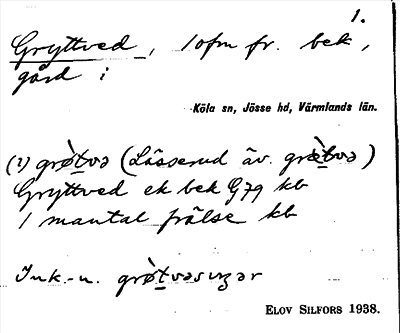 1.
Gryttved, 1 ofm fr. bek,
gård i
Köla sn, Jösse hd, Värmlands län.
(2) grø̀tvə (Lässerud äv. grètvə)
Gryttved ek bek G79 kb
1 mantal frälse kb
Ink.-n.
ELOV SILFORS 1938.